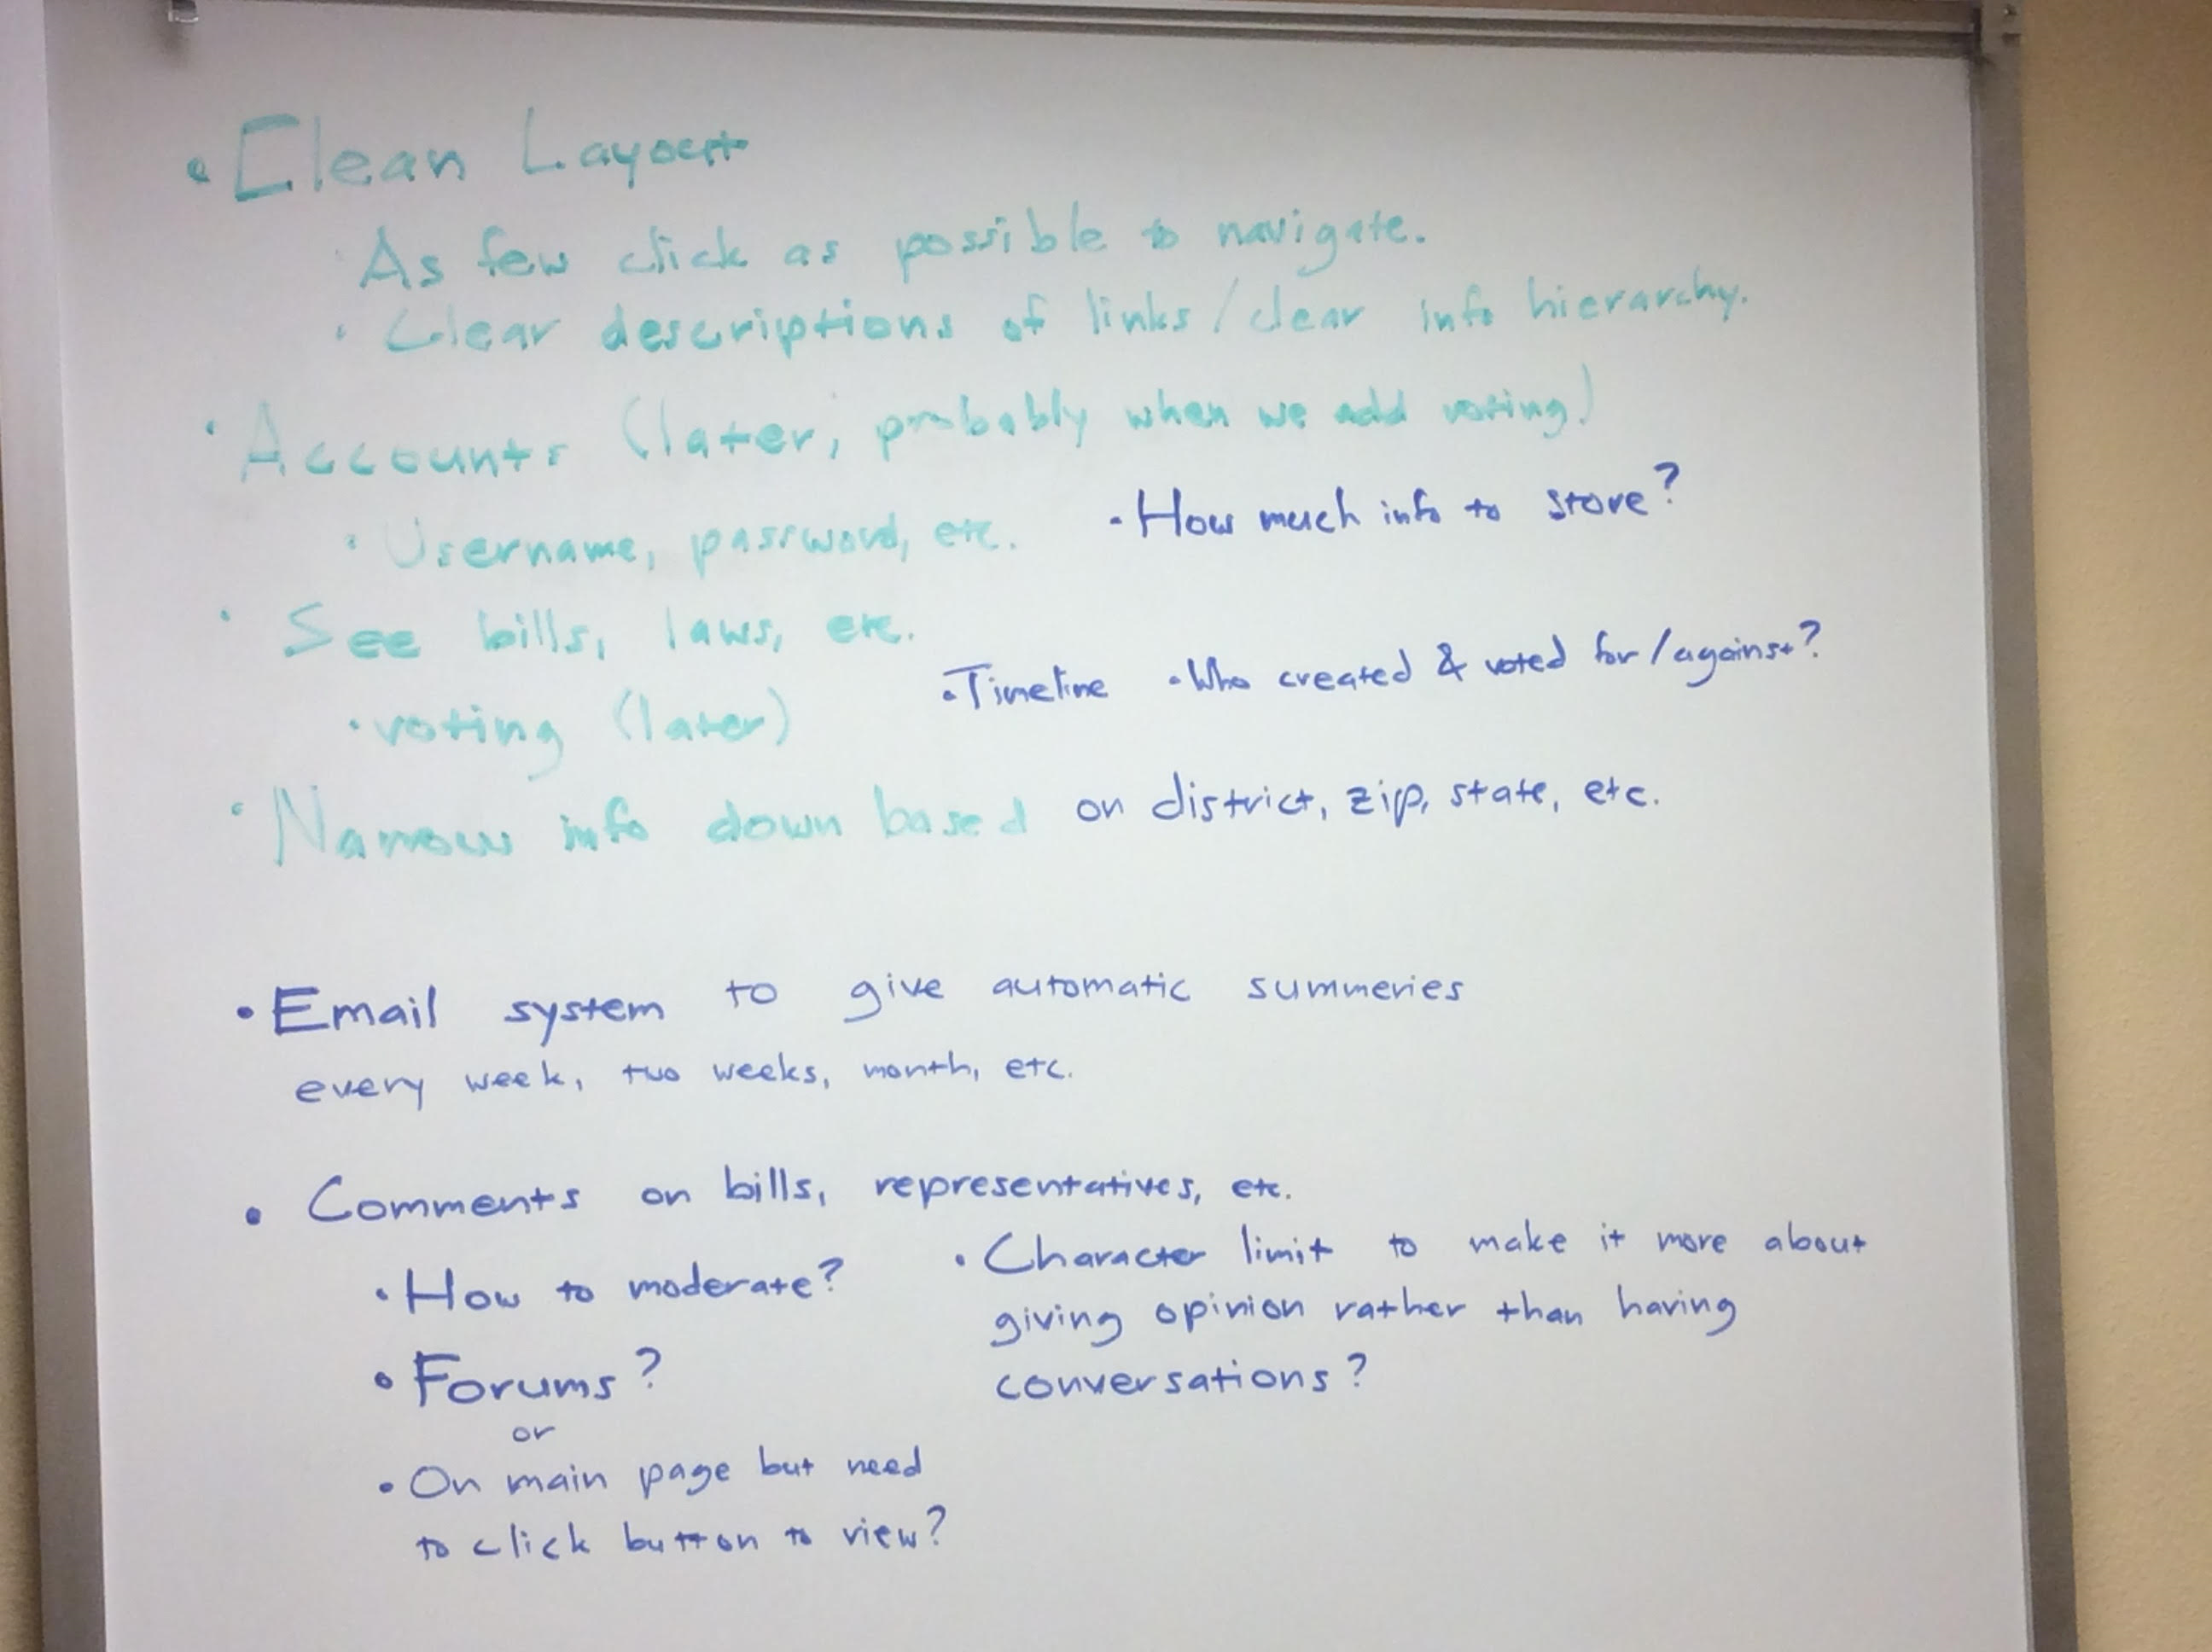 • Clean Layout
· As few click as possible to navigate.
· Clear descriptions of links/clear info hierarchy.
· Accounts (later, probably when we add voting)
· Username, password, etc. · How much info to store?
· See bills, laws, etc.
· voting (later) · Timeline · Who created & voted for/against?
· Narrow info down based on district, zip, state, etc.
• Email system to give automatic summeries
every week, two weeks, month, etc.
• Comments on bills, representatives, etc.
• How to moderate?
• Forums?
or
• On main page but need
to click button to view?
• Character limit to make it more about
giving opinion rather than having
conversations?